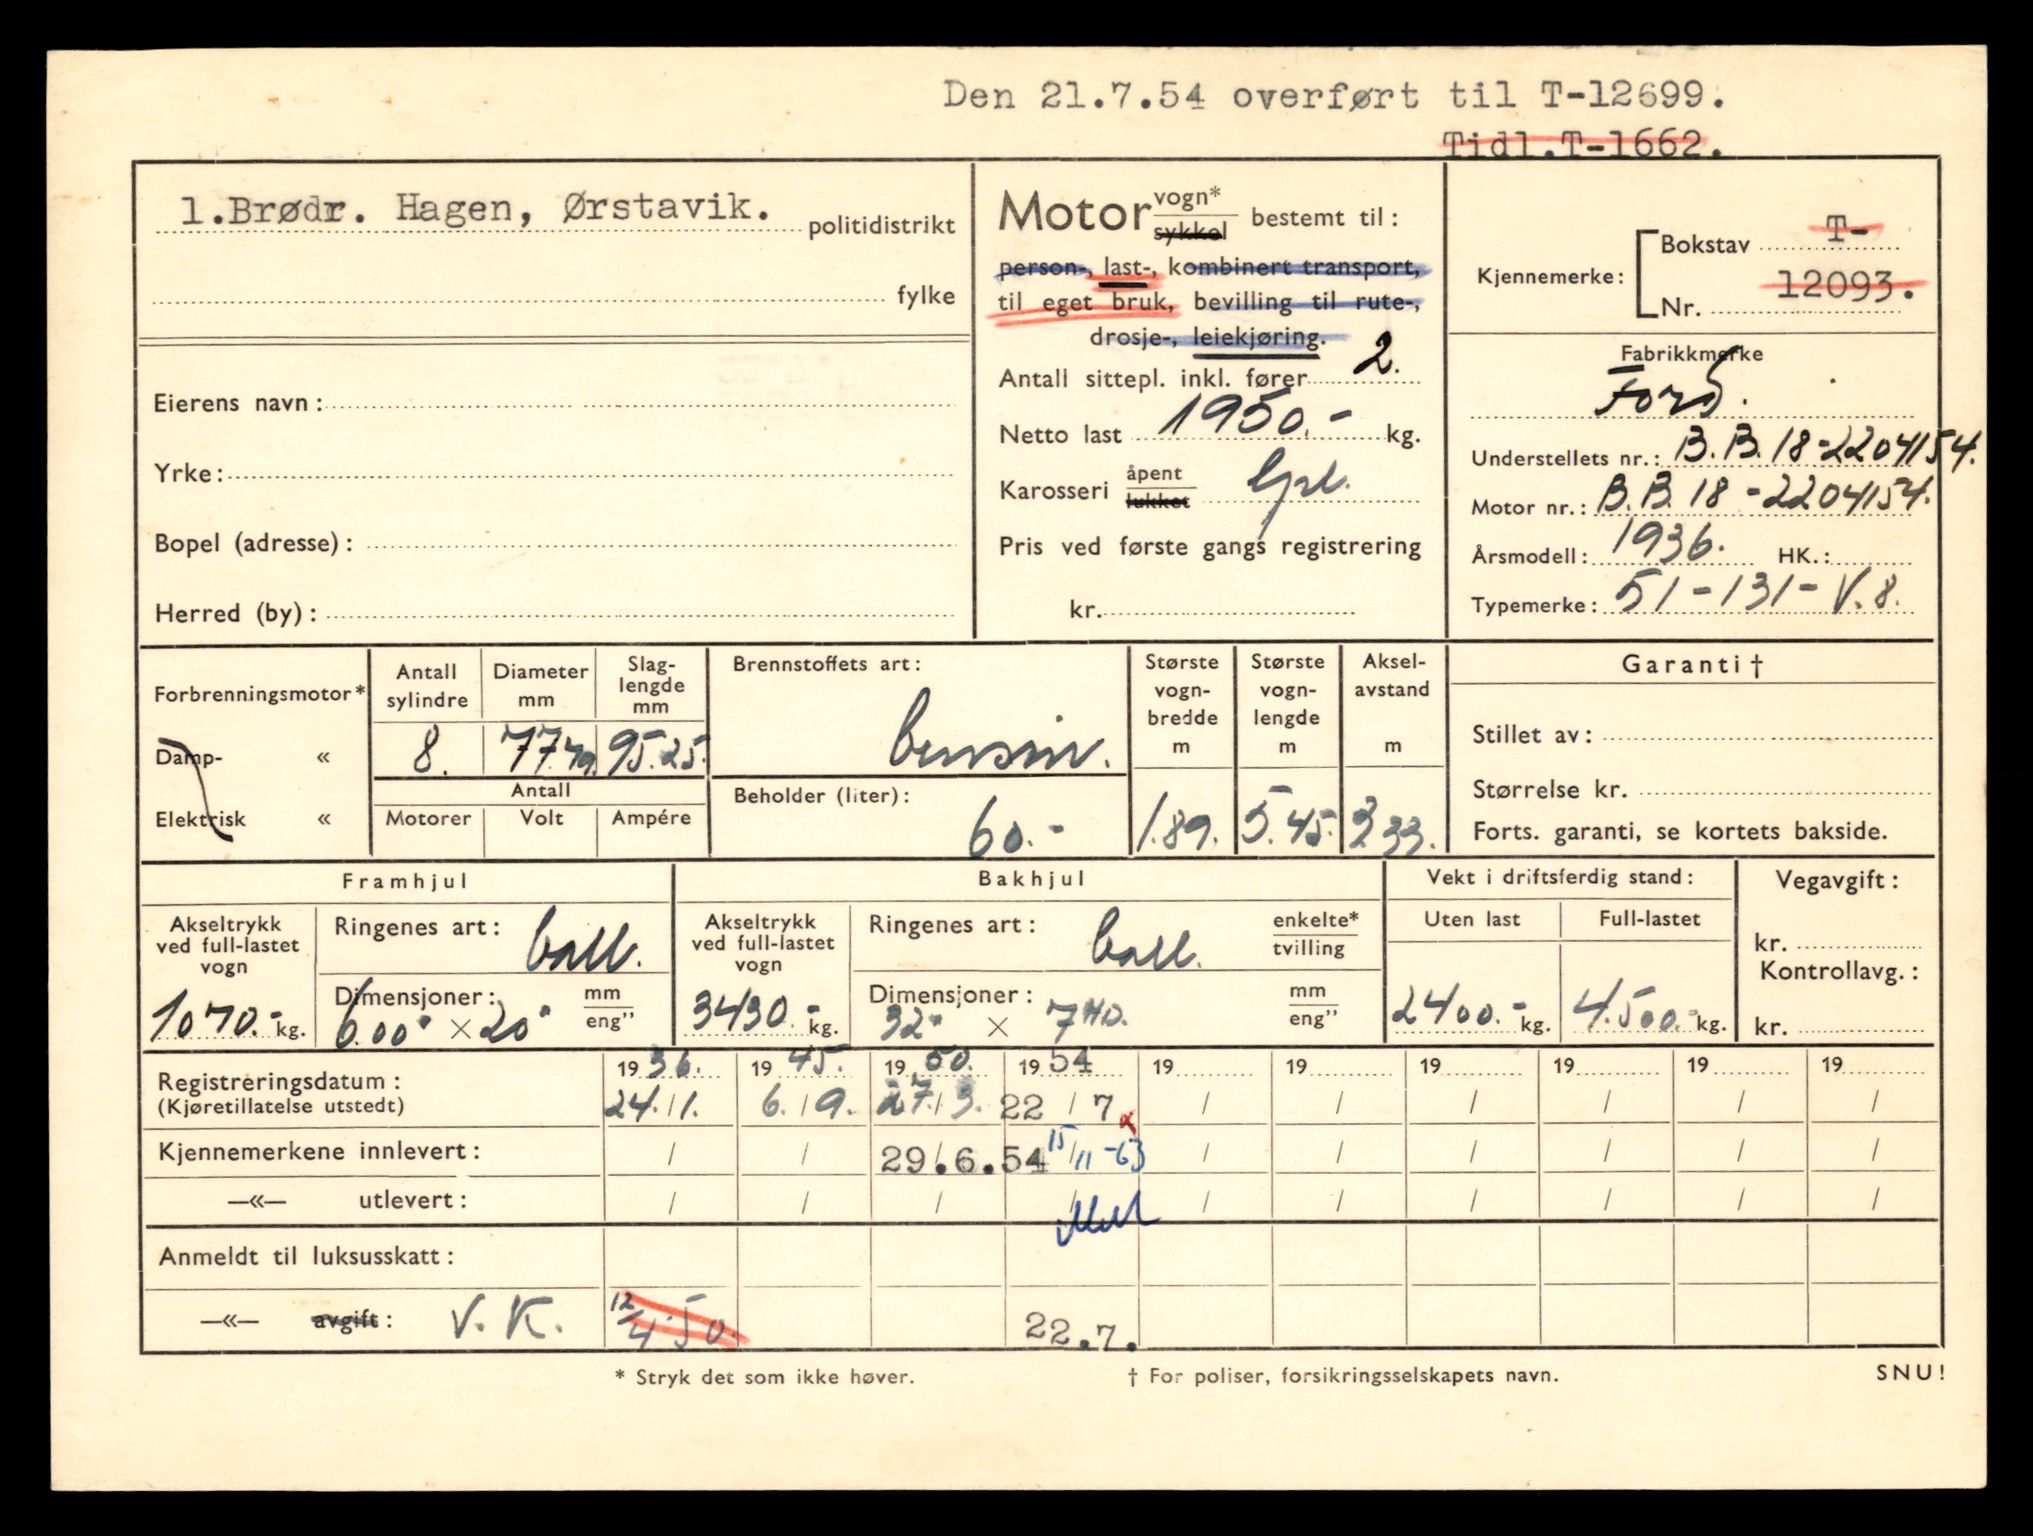 Den 21.7.54 overført til T-12699.
Tidl.T-1662.
1.Brødr. Hagen, Ørstavik. politidistrikt
fylke
Eierens navn:
Yrke:
Bopel (adresse):
Herred (by):
Motor vogn* sykkel bestemt til:
person-, last-, kombinert transport,
til eget bruk, bevilling til rute-,
drosje-, leiekjøring.
Antall sittepl. inkl. fører 2.
Netto last 1950.- kg.
Karosseri åpent lukket
Pris ved første gangs registrering
kr.
Kjennemerke: Bokstav T-
Nr. 12093.
Fabrikkmerke
Ford.
Understellets nr.: B.B.18-2204154.
Motor nr.: B.B.18-2204154.
Årsmodell: 1936. HK.:
Typemerke: 51-131-V.8.
Forbrenningsmotor*
Damp- «
Elektrisk «
Antall sylindre Diameter mm Slag-lengde mm
8. 95.25.
Antall
Motorer Volt Ampére
Brennstoffets art:
bensin.
Beholder (liter):
60.-
Største vogn-bredde m Største vogn-lengde m Aksel-avstand m
1.89. 5.45. 3.33.
Garanti †
Stillet av:
Størrelse kr.
Forts. garanti, se kortets bakside.
Framhjul
Akseltrykk ved full-lastet vogn
1070.- kg.
Ringenes art: ball.
Dimensjoner: mm eng”
6.00" × 20"
Bakhjul
Akseltrykk ved full-lastet vogn
3430.- kg.
Ringenes art: ball. enkelte* tvilling
Dimensjoner: mm eng”
32" ×
Vekt i driftsferdig stand:
Uten last Full-lastet
2400.- kg. 4.500.- kg.
Vegavgift:
kr.
Kontrollavg.:
kr.
19 36. 19 45. 19 50. 19 54 19 19 19 19 19 19
Registreringsdatum:
(Kjøretillatelse utstedt) 24./1. 6./9. 27./3. 22/7 / / / / / /
Kjennemerkene innlevert: / / 29.6.54 15/11-63 / / / / / /
—«— utlevert: / / / / / / / / / /
Anmeldt til luksusskatt:
—«— avgift: V.K. 12/4.50. 22.7.
* Stryk det som ikke høver.
† For poliser, forsikringsselskapets navn.
SNU!